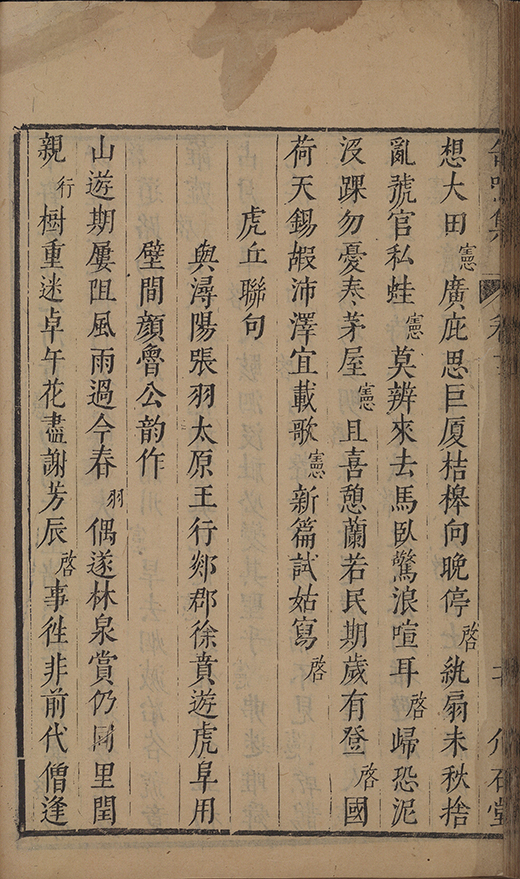 想大田憲廣庇思巨厦桔槹向晚停啓紈扇未秋捨
亂號官私蛙憲莫辨來去馬臥驚浪喧耳啓歸恐泥
沒踝勿憂卷茅屋憲且喜憩蘭若民期歲有登啓國
荷天錫嘏沛澤宜載歌憲新篇試姑寫啓
虎丘聯句
與潯陽張羽太原王行郯郡徐賁遊虎阜用
壁間顔魯公韵作
山遊期屢阻風雨過今春羽偶遂林泉賞仍同里閈
親行樹重迷卓午花盡謝芳辰啓事徃非前代僧逢
介石堂